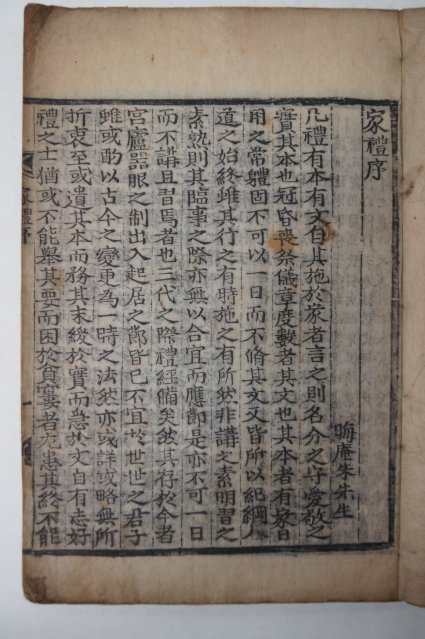 家禮序
晦庵朱先生
凡禮有本有文自其施於家者言之則名分之守愛敬之
實其本也冠昏喪祭儀章度數者其文也其本者有家日
用之常軆固不可以一日而不脩其文又皆所以紀綱人
道之始終雖其行之有時施之有所然非講之素明習之
素熟則其臨事之際亦無以合宜而應節是亦不可一日
而不講且習焉者也三代之際禮經備矣然其存於今者
宮廬器服之制出入起居之節皆已不宜於世世之君子
雖或酌以古今之變更為一時之法然亦或詳或略無所
折衷至或遺其本而務其末緩於實而急於文自有志好
禮之士猶或不能舉其要而困於貧窶者尤患其終不能
家禮序
一